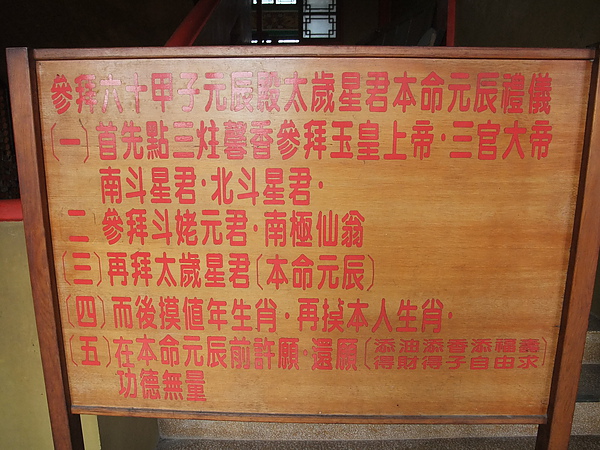 參拜六十甲子元辰殿太歲星君本命元辰禮儀
(一)首先點三炷馨香參拜玉皇上帝·三官大帝
南斗星君·北斗星君·
二 參拜斗姥元君·南極仙翁
(三)再拜太歲星君(本命元辰)
(四)而後摸值年生肖·再摸本人生肖·
(五)在本命元辰前許願·還願(添油添香添福壽
得財得子自由求)
功德無量